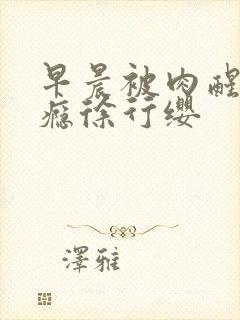 早晨被肉醒
瘾徐行缨
澤雅